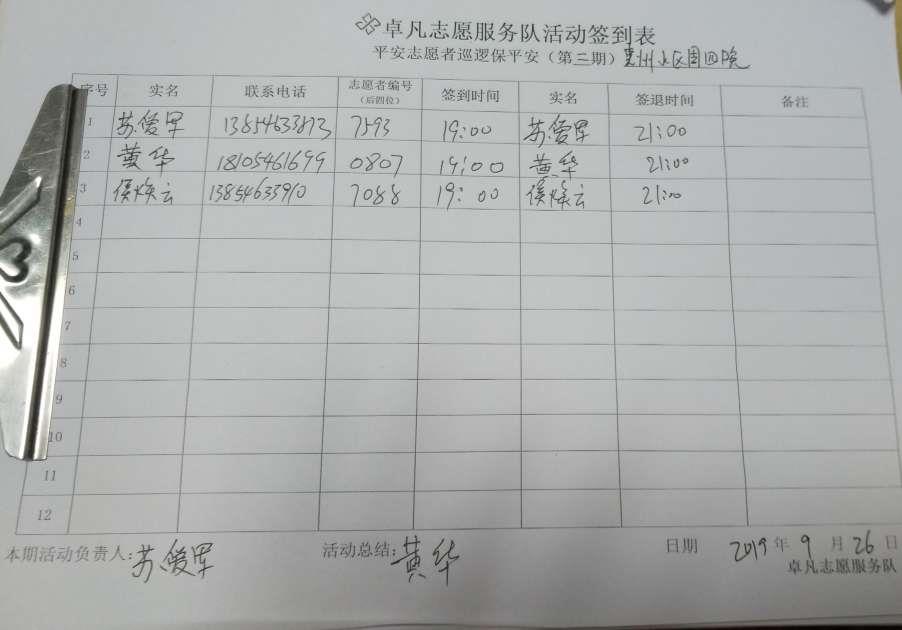 卓凡志愿服务队活动签到表
平安志愿者巡逻保平安（第三期）
序号 实名 联系电话 志愿者编号（后四位） 签到时间 实名 签退时间 备注
1 苏爱军 13854633873 7593 19:00 苏爱军 21:00
2 黄华 18105461699 0807 19:00 黄华 21:00
3 侯焕云 13854633910 7088 19:00 侯焕云 21:00
4
5
6
7
8
9
10
11
12
本期活动负责人:苏爱军 活动总结:黄华 日期 2019年9月26日
卓凡志愿服务队